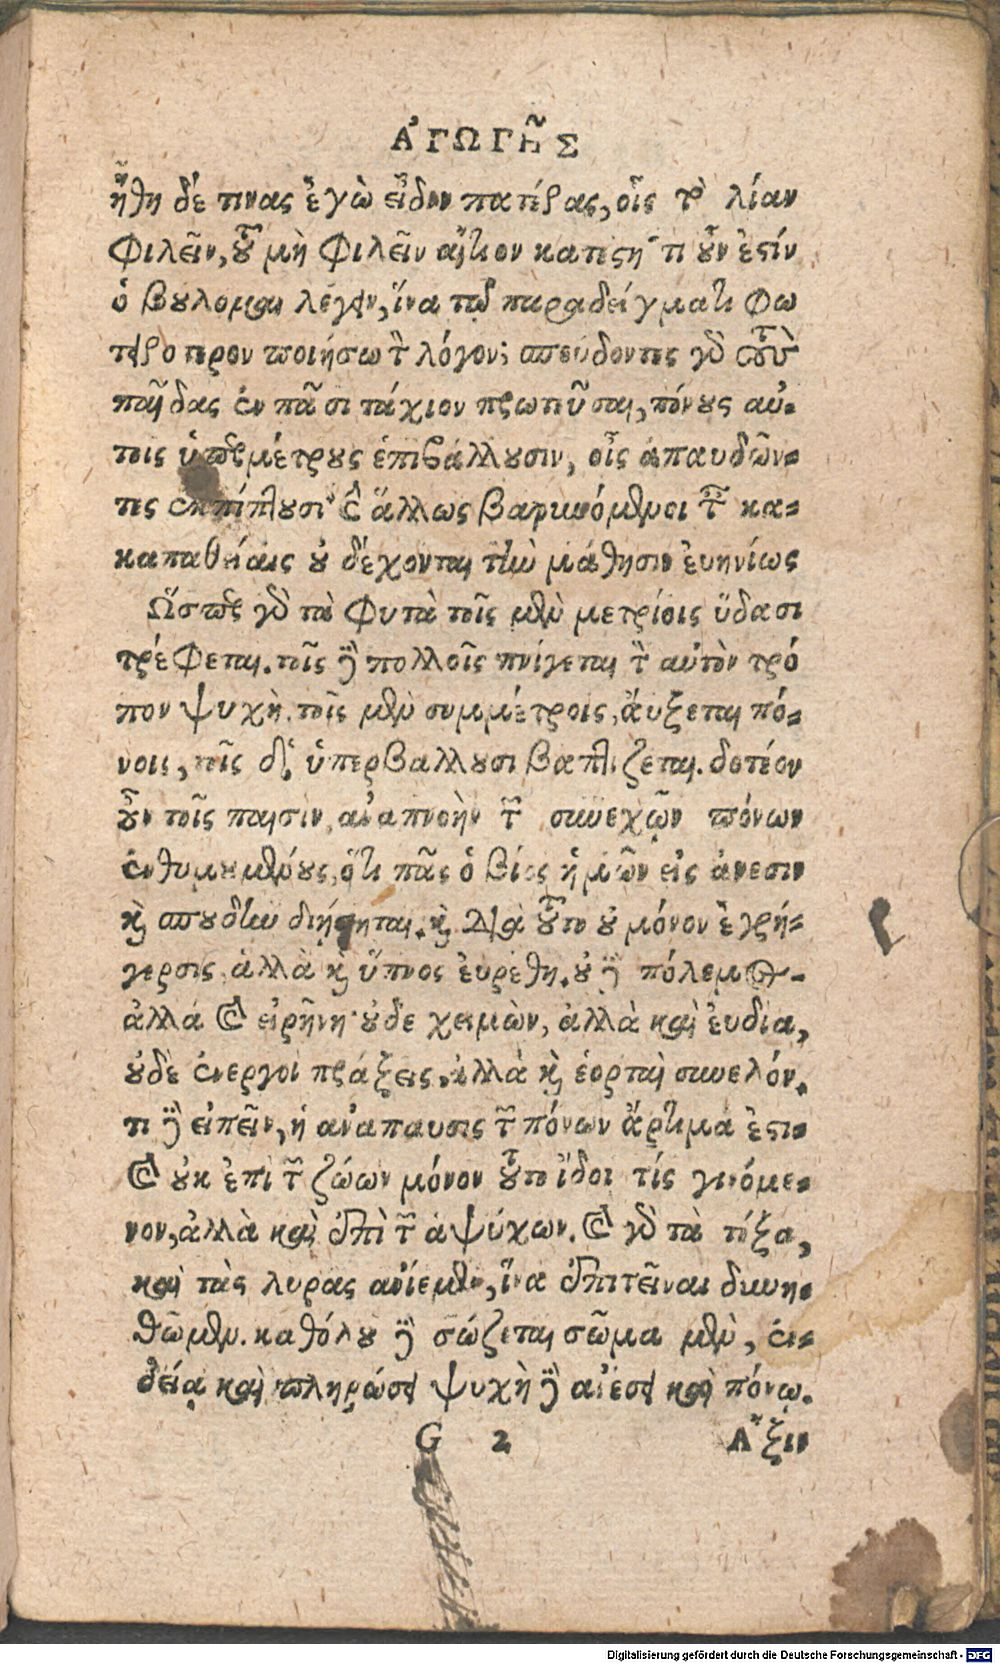 ἈΓΩΓΗ͂Σ
ἤθη δέ τινας ἐγὼ εἶδον πατέρας, οἷς τὸ λίαν
φιλεῖν, τοῦ μὴ φιλεῖν αἴτιον κατέστη· τί οὖν ἐστίν
ὁ βούλομαι λέγειν, ἵνα τῷ παραδείγματι φω
τεινότερον ποιήσω τὸν λόγον; σπεύδοντες γὰρ τοὺς
παῖδας ἐν πᾶσι τάχιον πρωτεῦσαι, πόνους αὐ-
τοις ὑπερμέτρους ἐπιβάλλουσιν, οἷς ἀπαυδῶν-
τες ἐκπίπτουσι· καὶ ἄλλως βαρυνόμενοι ταῖς κα-
κοπαθείαις οὐ δέχονται τὴν μάθησιν εὐηνίως
Ὥσπερ γὰρ τὰ φυτὰ τοῖς μὲν μετρίοις ὕδασι
τρέφεται. τοῖς δὲ πολλοῖς πνίγεται τὸν αὐτὸν τρό
πον ψυχὴ. τοῖς μὲν συμμέτροις, ἀύξεται πό-
νοις, τοῖς δ' ὑπερβαλλουσι βαπτιζεται. δοτέον
οὖν τοῖς παισιν ἀναπνοὴν τῶν συνεχῶν πόνων
ἐνθυμουμένους, ὅτι πᾶς ὁ βίος ἡμῶν εἰς ἄνεσιν
καὶ σπουδὴν διῄρηται. καὶ διὰ τοῦτο οὐ μόνον ἐγρή-
γερσις ἀλλὰ καὶ ὕπνος ἑυρέθη. οὐδὲ πόλεμος
ἀλλά καὶ εἰρήνη· οὐδε χειμὼν, ἀλλὰ καὶ ἐυδία,
οὐδὲ ἐνεργοὶ πράξεις, ἀλλὰ καὶ ἑορταὶ συνελόν-
τι δὲ εἰπεῖν, ἡ ἀνάπαυσις τῶν πόνων ἄρτιμά ἐστι-
καὶ οὐκ ἐπὶ τῶν ζώων μόνον τοῦτο ἴδοι τίς γινόμε-
νον, ἀλλὰ καὶ ἐπὶ τῶν ἀψύχων. καὶ γὰρ τὰ τόξα,
καὶ τὰς λυρας ἀνίεμεν, ἵνα ἐπιτεῖναι δυνη-
θῶμεν. καθόλου δὲ σώζεται σῶμα μὲν, ἐν-
δείᾳ καὶ πληρώσει ψυχὴ δὲ ἀνέσει καὶ πόνῳ.
G 2 Ἄξιν
Digitalisierung gefördert durch die Deutsche Forschungsgemeinschaft - DFG